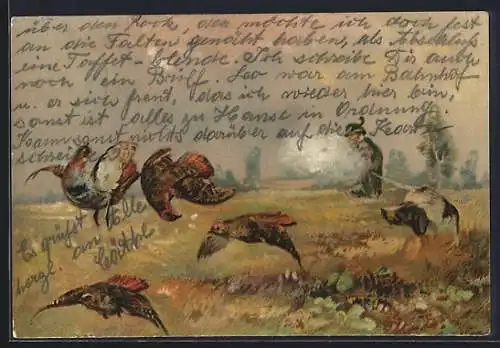 über den Rock, den möchte ich doch fest
an die Falten genäht haben, als Abschluß
eine Taffet-blende. Ich schreibe Dir auch
noch ein Brief. Leo war am Bahnhof
u. er sich freut, das ich wieder hier bin,
sonst ist alles zu Hause in Ordnung.
Kann sonst nichts darüber auf die Kart
schreibe
Es grüßt
herzl. am Elle